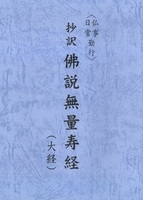 （仏事
日常勤行）
抄訳 佛説無量寿経
（大経）